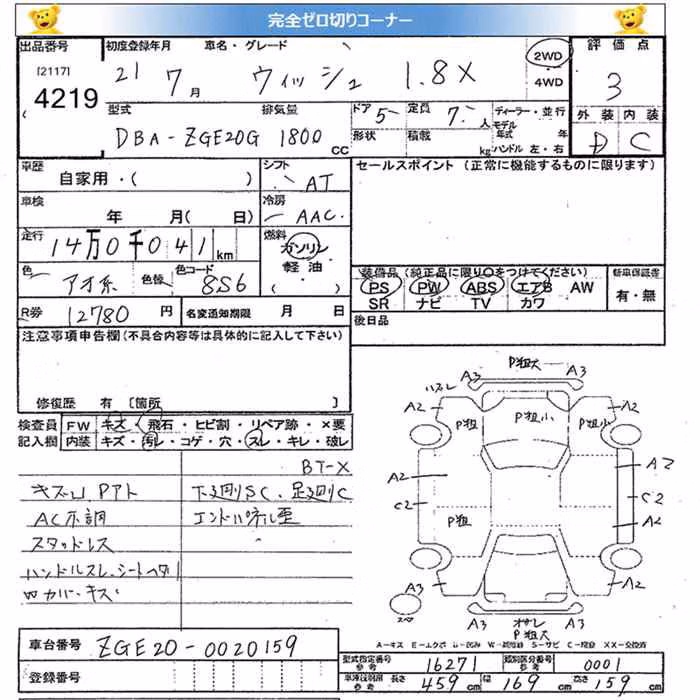 完全ゼロ切りコーナー
出品番号 初度登録年月 車名・グレード 評価点
[2117] 21 7月 ウィッシュ 1.8X 2WD 4WD 3
4219
型式 排気量 ドア 5 定員 7 人 ディーラー・並行 外装 内装
DBA-ZGE20G 1800cc 形状 積載 kg モデル年式 年 ハンドル 左・右 D C
車歴 シフト セールスポイント (正常に機能するものに限ります)
自家用・( ) AT
車検 冷房
年 月( 日) AAC
走行 燃料
14万0千041km ガソリン
軽油
( )
色 色替 色コード 装備品(純正品に限り○をつけてください) 新車保証書
アオ系 8S6 PS PW ABS エアB AW 有・無
SR ナビ TV カワ
R券 12780 円 名変通知期限 月 日 後日品
注意事項申告欄 (不具合内容等は具体的に記入して下さい)
修復歴 有 [箇所 ]
検査員 FW キズ・飛石・ヒビ割・リペア跡・×要
記入欄 内装 キズ・汚レ・コゲ・穴・スレ・キレ・破レ
BT-X
キズ凹 Pアト 下廻SC、足廻C
AC不調 エンドパネル歪
スタッドレス
ハンドルスレ、シートヘタリ
カバーキズ
P粗大
ハズレ A3 A3
A2 P粗 P粗小 P粗小 A2
A2 A2
C2 C2
P粗 A2
A3 A2
A3 オサレ A3
P粗大
A-キズ E-エクボ U-凹み W-補修跡 S-サビ C-腐食 XX-交換済
車台番号 ZGE20-0020159
登録番号
型式指定番号 参考 16271 類別区分番号 参考 0001
車庫証明用 参考 長さ 459cm 幅 169cm 高さ 159cm